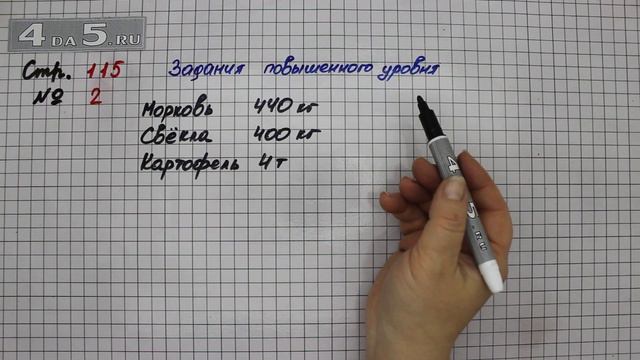 4DA5.RU
Стр. 115 Задания повышенного уровня
№ 2
Морковь 440 кг
Свёкла 400 кг
Картофель 4 т
4 5.RU